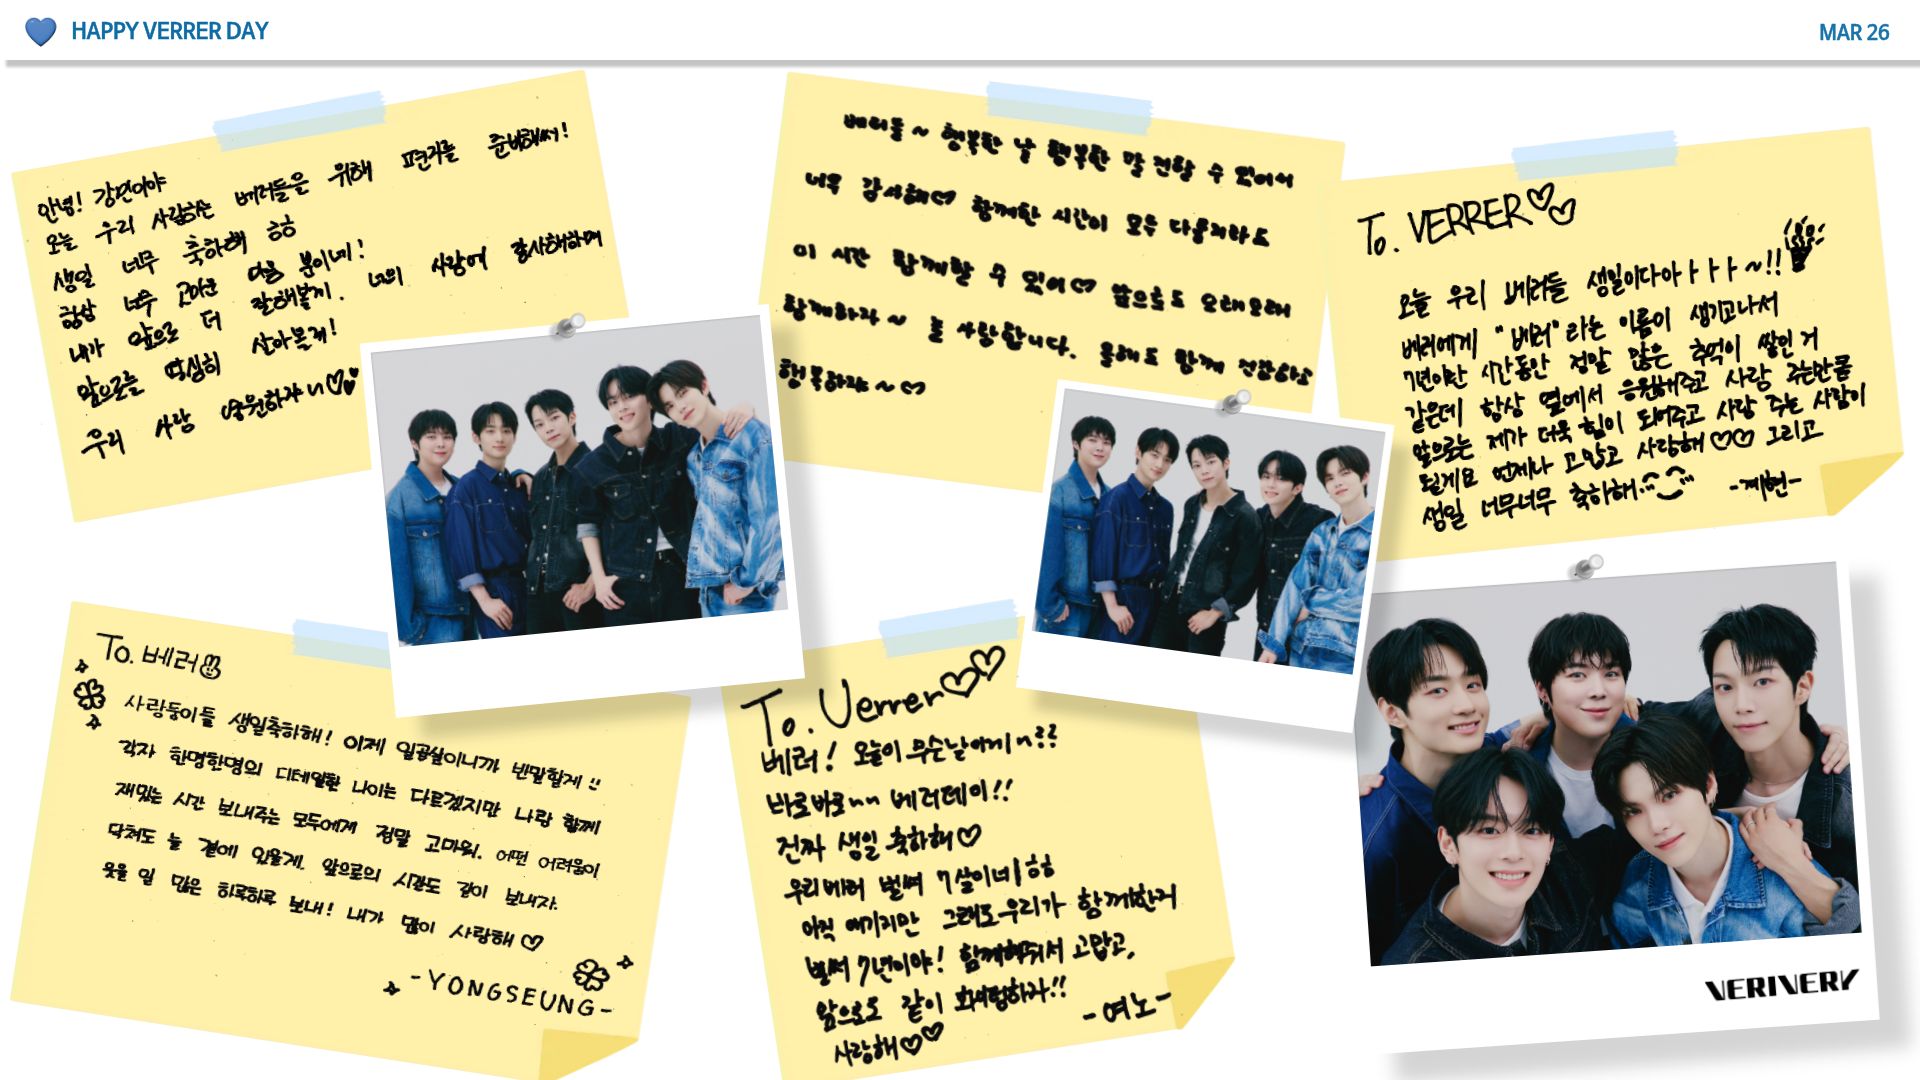 HAPPY VERRER DAY
MAR 26
안녕! 강민이야
오늘 우리 사랑하는 베러들을 위해 편지를 준비해써!
생일 너무 축하해 ㅎㅎ
항상 너무 고마운 마음 뿐이네!
내가 앞으로 더 잘해볼게. 너의 사랑에 감사해하며
앞으로를 열심히 살아볼게!
우리 사랑 영원하자
베러들~ 행복한 날 행복한 말 전할 수 있어서
너무 감사해♡ 함께한 시간이 모두 다를지라도
이 시간 함께할 수 있어♡ 앞으로도 오래오래
함께하자~ 늘 사랑합니다. 올해도 함께 건강하고
행복하자~♡
To. VERRER♡♡
오늘 우리 베러들 생일이다아ㅏㅏㅏ~!!
베러에게 "베러"라는 이름이 생기고나서
7년이란 시간동안 정말 많은 추억이 쌓인 거
같은데 항상 옆에서 응원해주고 사랑 주는만큼
앞으로는 제가 더욱 힘이 되어주고 사랑 주는 사람이
될게요 언제나 고맙고 사랑해♡♡ 그리고
생일 너무너무 축하해
-계현-
To. 베러
사랑둥이들 생일축하해! 이제 일곱살이니까 반말할게!!
각자 한명한명의 디테일한 나이는 다르겠지만 나랑 함께
재밌는 시간 보내주는 모두에게 정말 고마워. 어떤 어려움이
닥쳐도 늘 곁에 있을게. 앞으로의 시간도 같이 보내자.
웃을 일 많은 하루하루 보내! 내가 많이 사랑해♡
-YONGSEUNG-
To. Verrer♡♡
베러! 오늘이 무슨날이게
바로바로~~ 베러데이!!
진짜 생일 축하해♡
우리베러 벌써 7살이네ㅎㅎ
아직 애기지만 그래도 우리가 함께한지
벌써 7년이야! 함께해줘서 고맙고,
앞으로도 같이 하자!!
사랑해♡♡
-연호-
VERIVERY